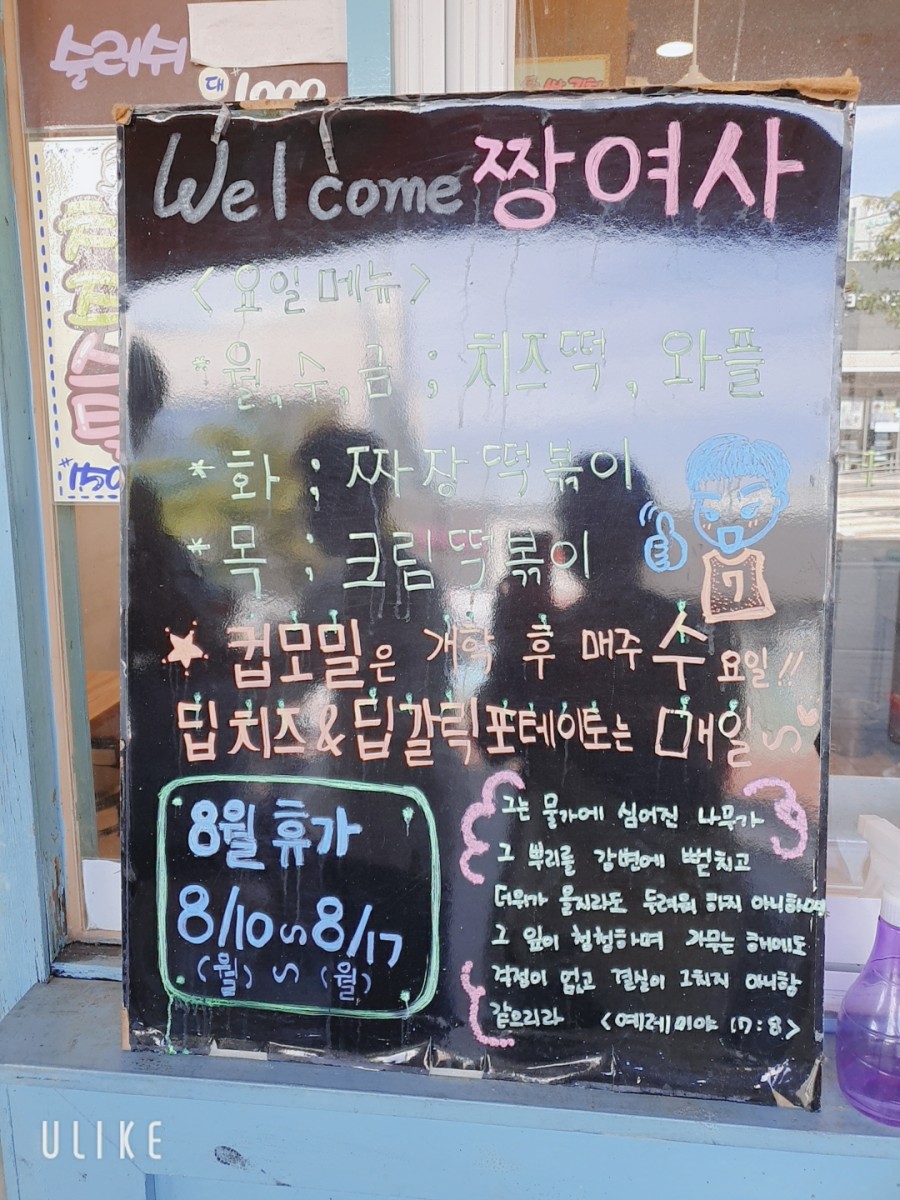 슬러쉬
대 1000
Welcome 짱여사
<요일메뉴>
*월,수,금 ; 치즈떡, 와플
*화 ; 짜장떡볶이
*목 ; 크림떡볶이
7
☆ 컵모밀은 개학 후 매주 수요일!!
딥치즈&딥갈릭포테이토는 매일~♡
8월 휴가
8/10~8/17
(월)~(월)
그는 물가에 심어진 나무가
그 뿌리를 강변에 뻗치고
더위가 올지라도 두려워 하지 아니하며
그 잎이 청청하며 가무는 해에도
걱정이 없고 결실이 그치지 아니함
같으리라 <예레미야 17:8>
150
ULIKE